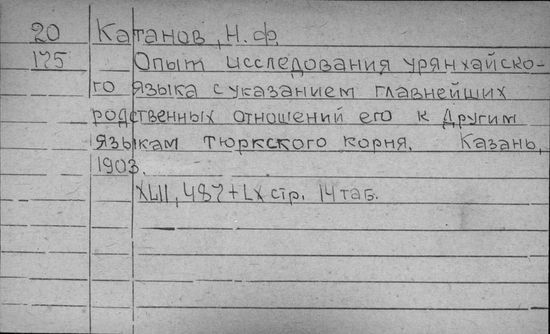 20 Катанов, Н.Ф.
175 Опыт исследования урянхайско-
го языка с указанием главнейших
родственных отношений его к другим
языкам тюркского корня. Казань,
1903.
XLII, 487 + LX стр. 14 таб.